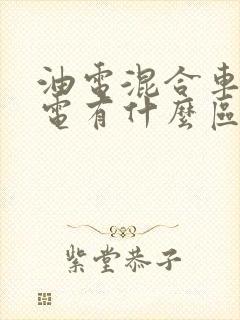 油電混合車
電有什麼區
紫堂恭子